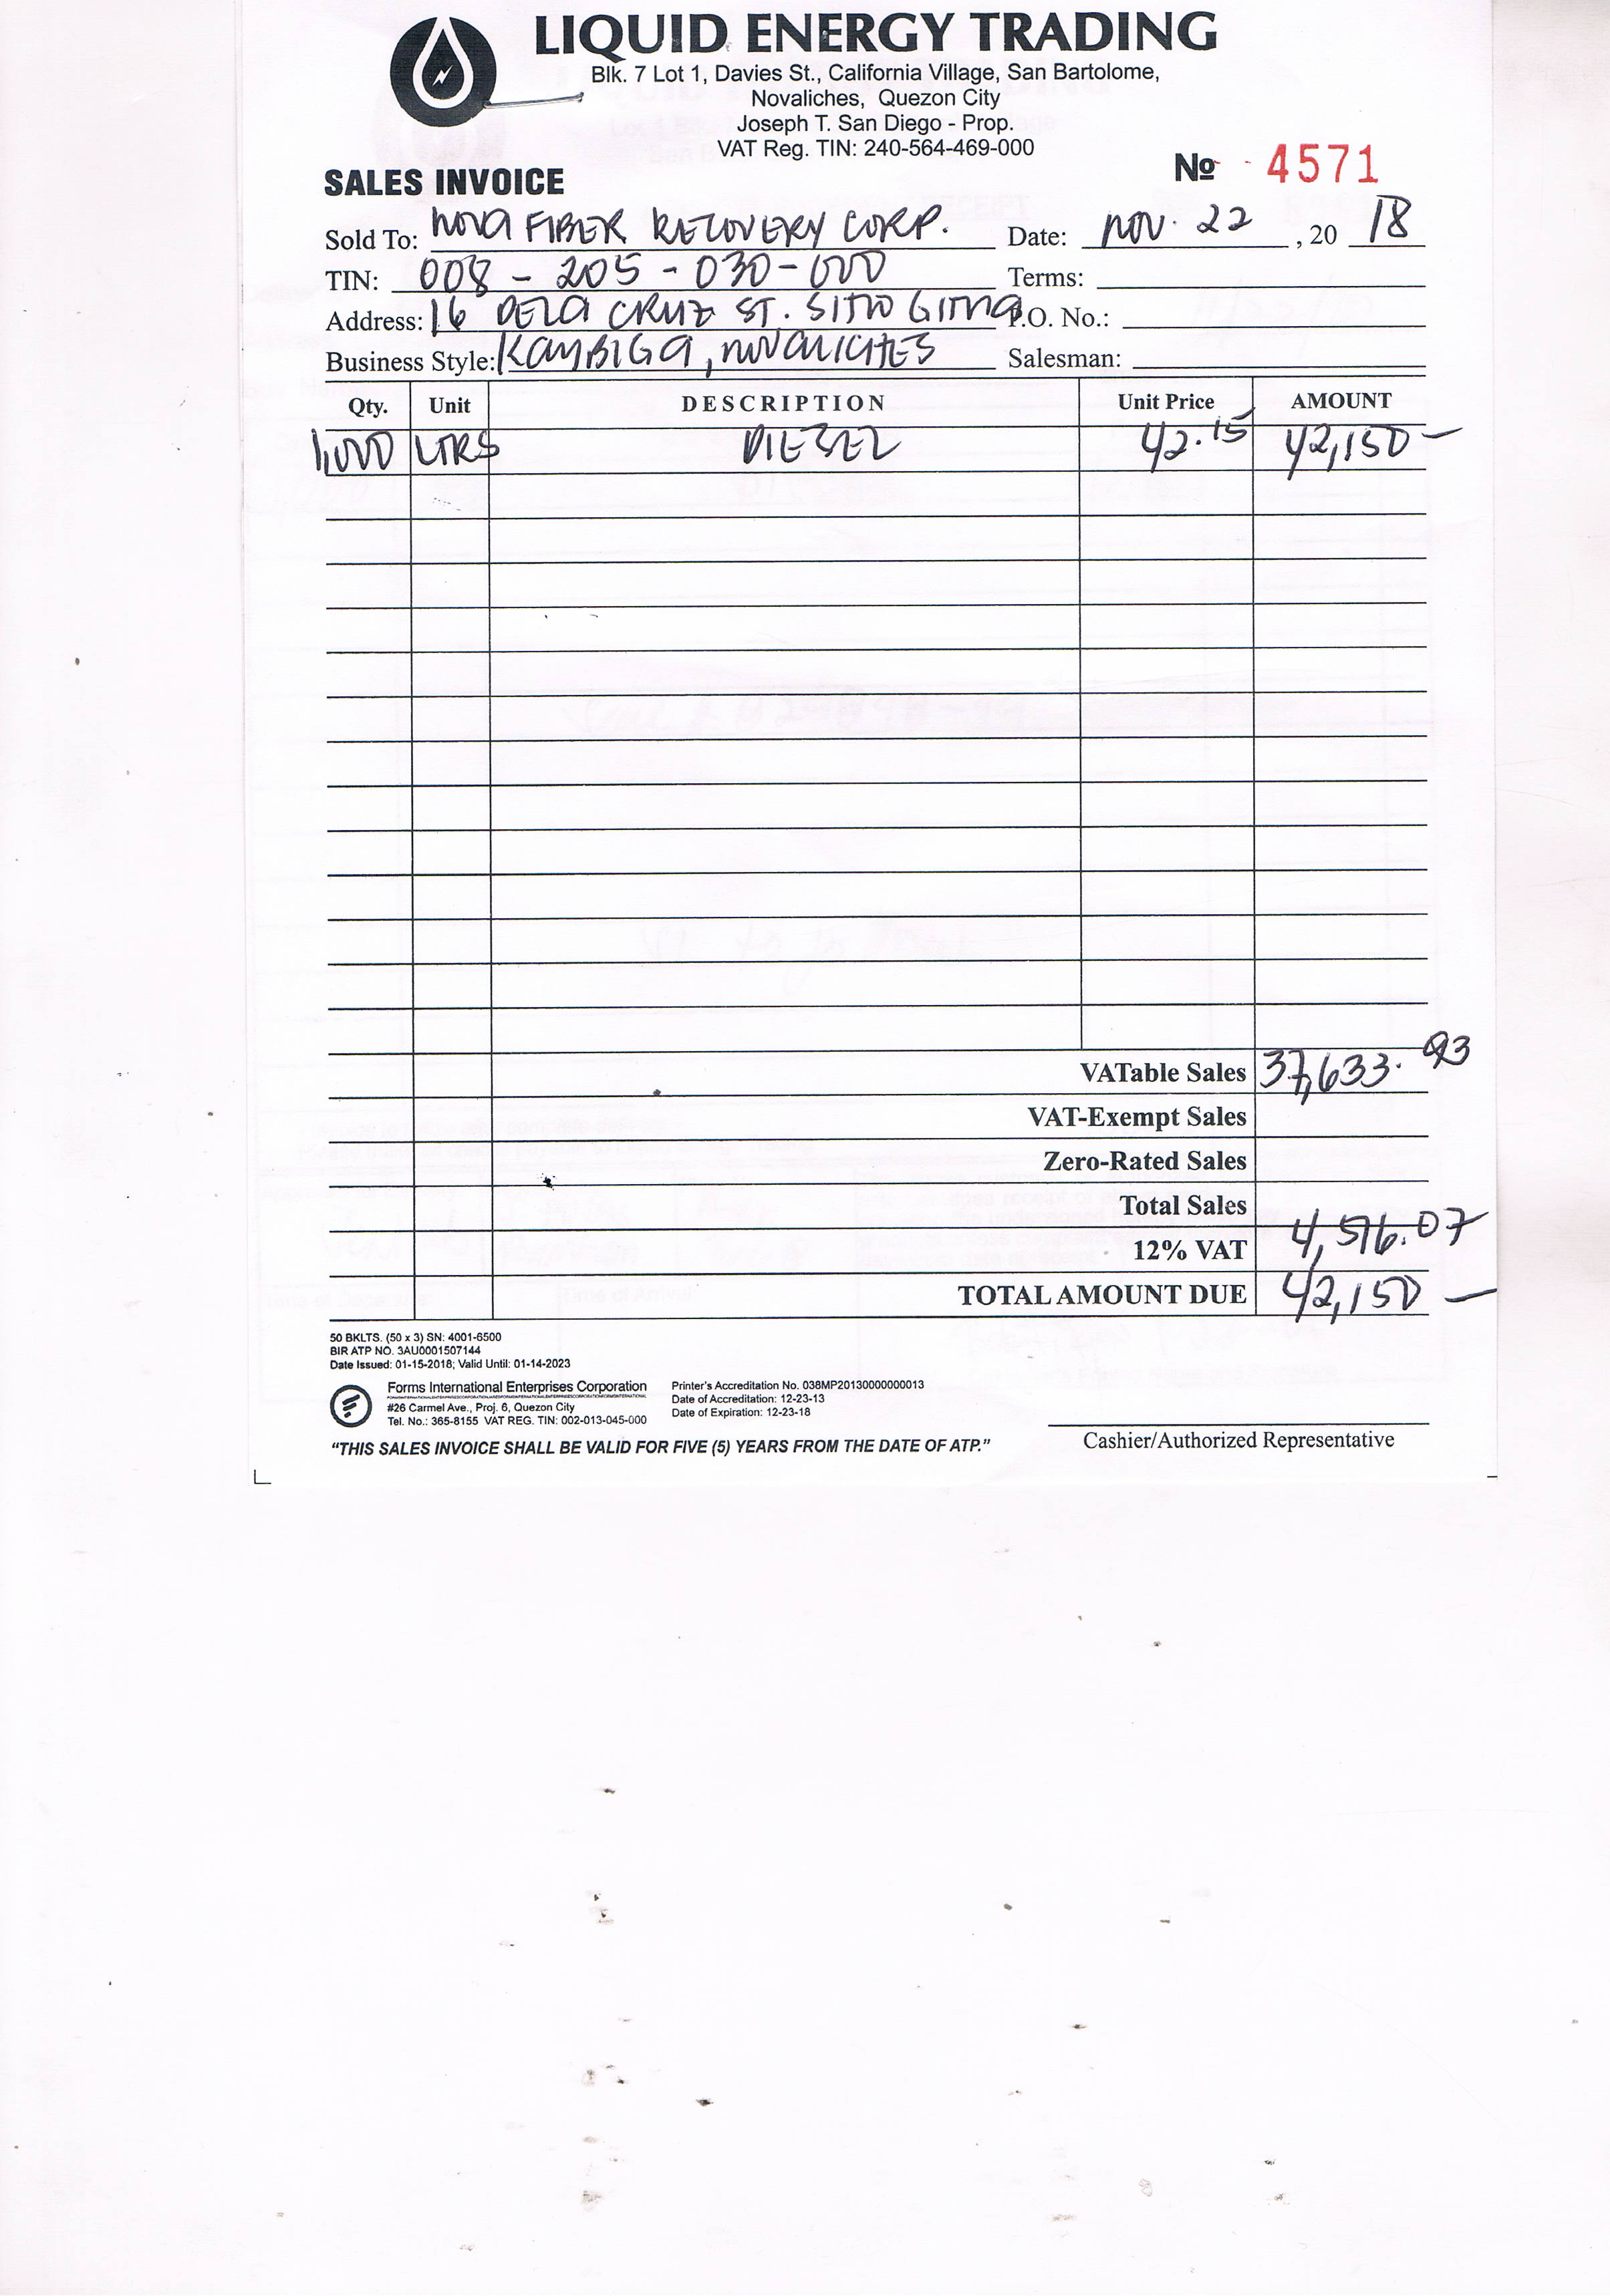 LIQUID ENERGY TRADING
Blk. 7 Lot 1, Davies St., California Village, San Bartolome,
Novaliches, Quezon City
Joseph T. San Diego - Prop.
VAT Reg. TIN: 240-564-469-000
SALES INVOICE
№ 4571
Sold To: NOVA FIBER RECOVERY CORP. Date: NOV. 22, 20 18
TIN: 008 - 205 - 030 - 000 Terms:
Address: 16 DELA CRUZ ST. SITIO GITNA P.O. No.:
Business Style: KAYBIGA, NOVALICHES Salesman:
Qty. Unit DESCRIPTION Unit Price AMOUNT
1,000 LTRS DIESEL 42.15 42,150 —
VATable Sales 37,633.93
VAT-Exempt Sales
Zero-Rated Sales
Total Sales
12% VAT 4,516.07
TOTAL AMOUNT DUE 42,150 —
50 BKLTS. (50 x 3) SN: 4001-6500
BIR ATP NO. 3AU0001507144
Date Issued: 01-15-2018; Valid Until: 01-14-2023
Forms International Enterprises Corporation
#26 Carmel Ave., Proj. 6, Quezon City
Tel. No.: 365-8155 VAT REG. TIN: 002-013-045-000
Printer's Accreditation No. 038MP20130000000013
Date of Accreditation: 12-23-13
Date of Expiration: 12-23-18
"THIS SALES INVOICE SHALL BE VALID FOR FIVE (5) YEARS FROM THE DATE OF ATP."
Cashier/Authorized Representative